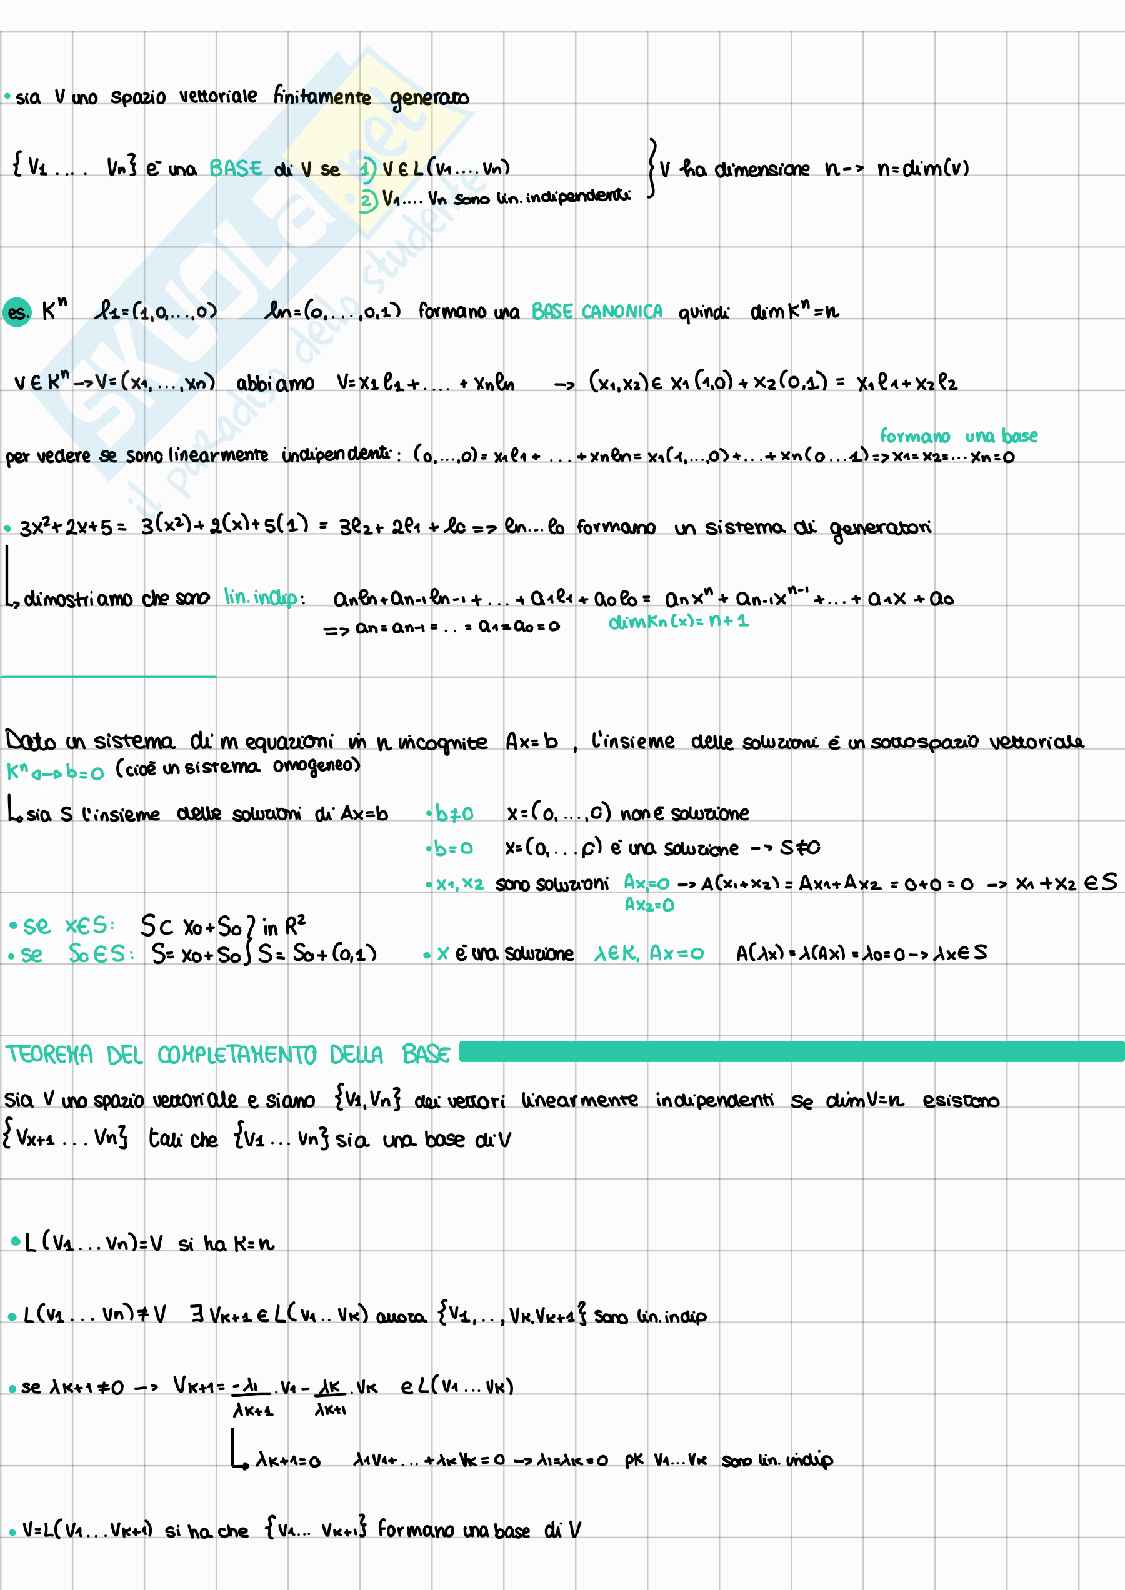 • sia V uno spazio vettoriale finitamente generato
{V1 .... Vn} è una BASE di V se 1) V ∈ L(V1 .... Vn) } V ha dimensione n -> n=dim(v)
2) V1 .... Vn sono lin. indipendenti
es. K^n e1=(1,0,...,0) en=(0,...,0,1) formano una BASE CANONICA quindi dim K^n=n
V ∈ K^n -> V=(x1,...,xn) abbiamo V=x1e1+....+xnen -> (x1,x2) ∈ x1(1,0)+x2(0,1) = x1e1+x2e2
formano una base
per vedere se sono linearmente indipendenti: (0,...,0)=x1e1+ ...+xnen=x1(1,...,0)+...+xn(0...1)=>x1=x2=...xn=0
• 3x²+2x+5= 3(x²)+2(x)+5(1) = 3e2+2e1+e0 => en...e0 formano un sistema di generatori
↳ dimostriamo che sono lin.indip: anen+an-1en-1+...+a1e1+a0e0= anx^n+an-1x^n-1+...+a1x+a0
=> an=an-1=..=a1=a0=0 dimKn(x)=n+1
Dato un sistema di m equazioni in n incognite Ax=b, l'insieme delle soluzioni è un sottospazio vettoriale
K^n <-> b=0 (cioè un sistema omogeneo)
↳ sia S l'insieme delle soluzioni di Ax=b •b≠0 x=(0,...,0) non è soluzione
•b=0 x=(0,...0) è una soluzione -> S≠0
•x1,x2 sono soluzioni Ax1=0 -> A(x1+x2)=Ax1+Ax2=0+0=0 -> x1+x2 ∈ S
Ax2=0
• se x∈S: S⊂ x0+S0 } in R²
• se S0∈S: S= x0+S0 } S= S0+(0,1) • x è una soluzione λ∈K, Ax=0 A(λx)=λ(Ax)=λ0=0 -> λx∈S
TEOREMA DEL COMPLETAMENTO DELLA BASE
Sia V uno spazio vettoriale e siano {V1,Vn} dei vettori linearmente indipendenti se dimV=n esistono
{Vx+1 ... Vn} tali che {V1 ... Vn} sia una base di V
• L(V1 ... Vn)=V si ha K=n
• L(V1 ... Vn)≠V ∃ VK+1 ∈ L(V1 .. VK) allora {V1,..,VK,VK+1} sono lin.indip
• se λK+1≠0 -> VK+1= -λ1/λK+1 · V1 - λK/λK+1 · VK ∈ L(V1 ... VK)
↳ λK+1=0 λ1V1+...+λKVK=0 -> λ1=λK=0 pK V1...VK sono lin. indip
• V=L(V1...VK+1) si ha che {V1... VK+1} formano una base di V
SKUOLA.net
il paradiso dello studente